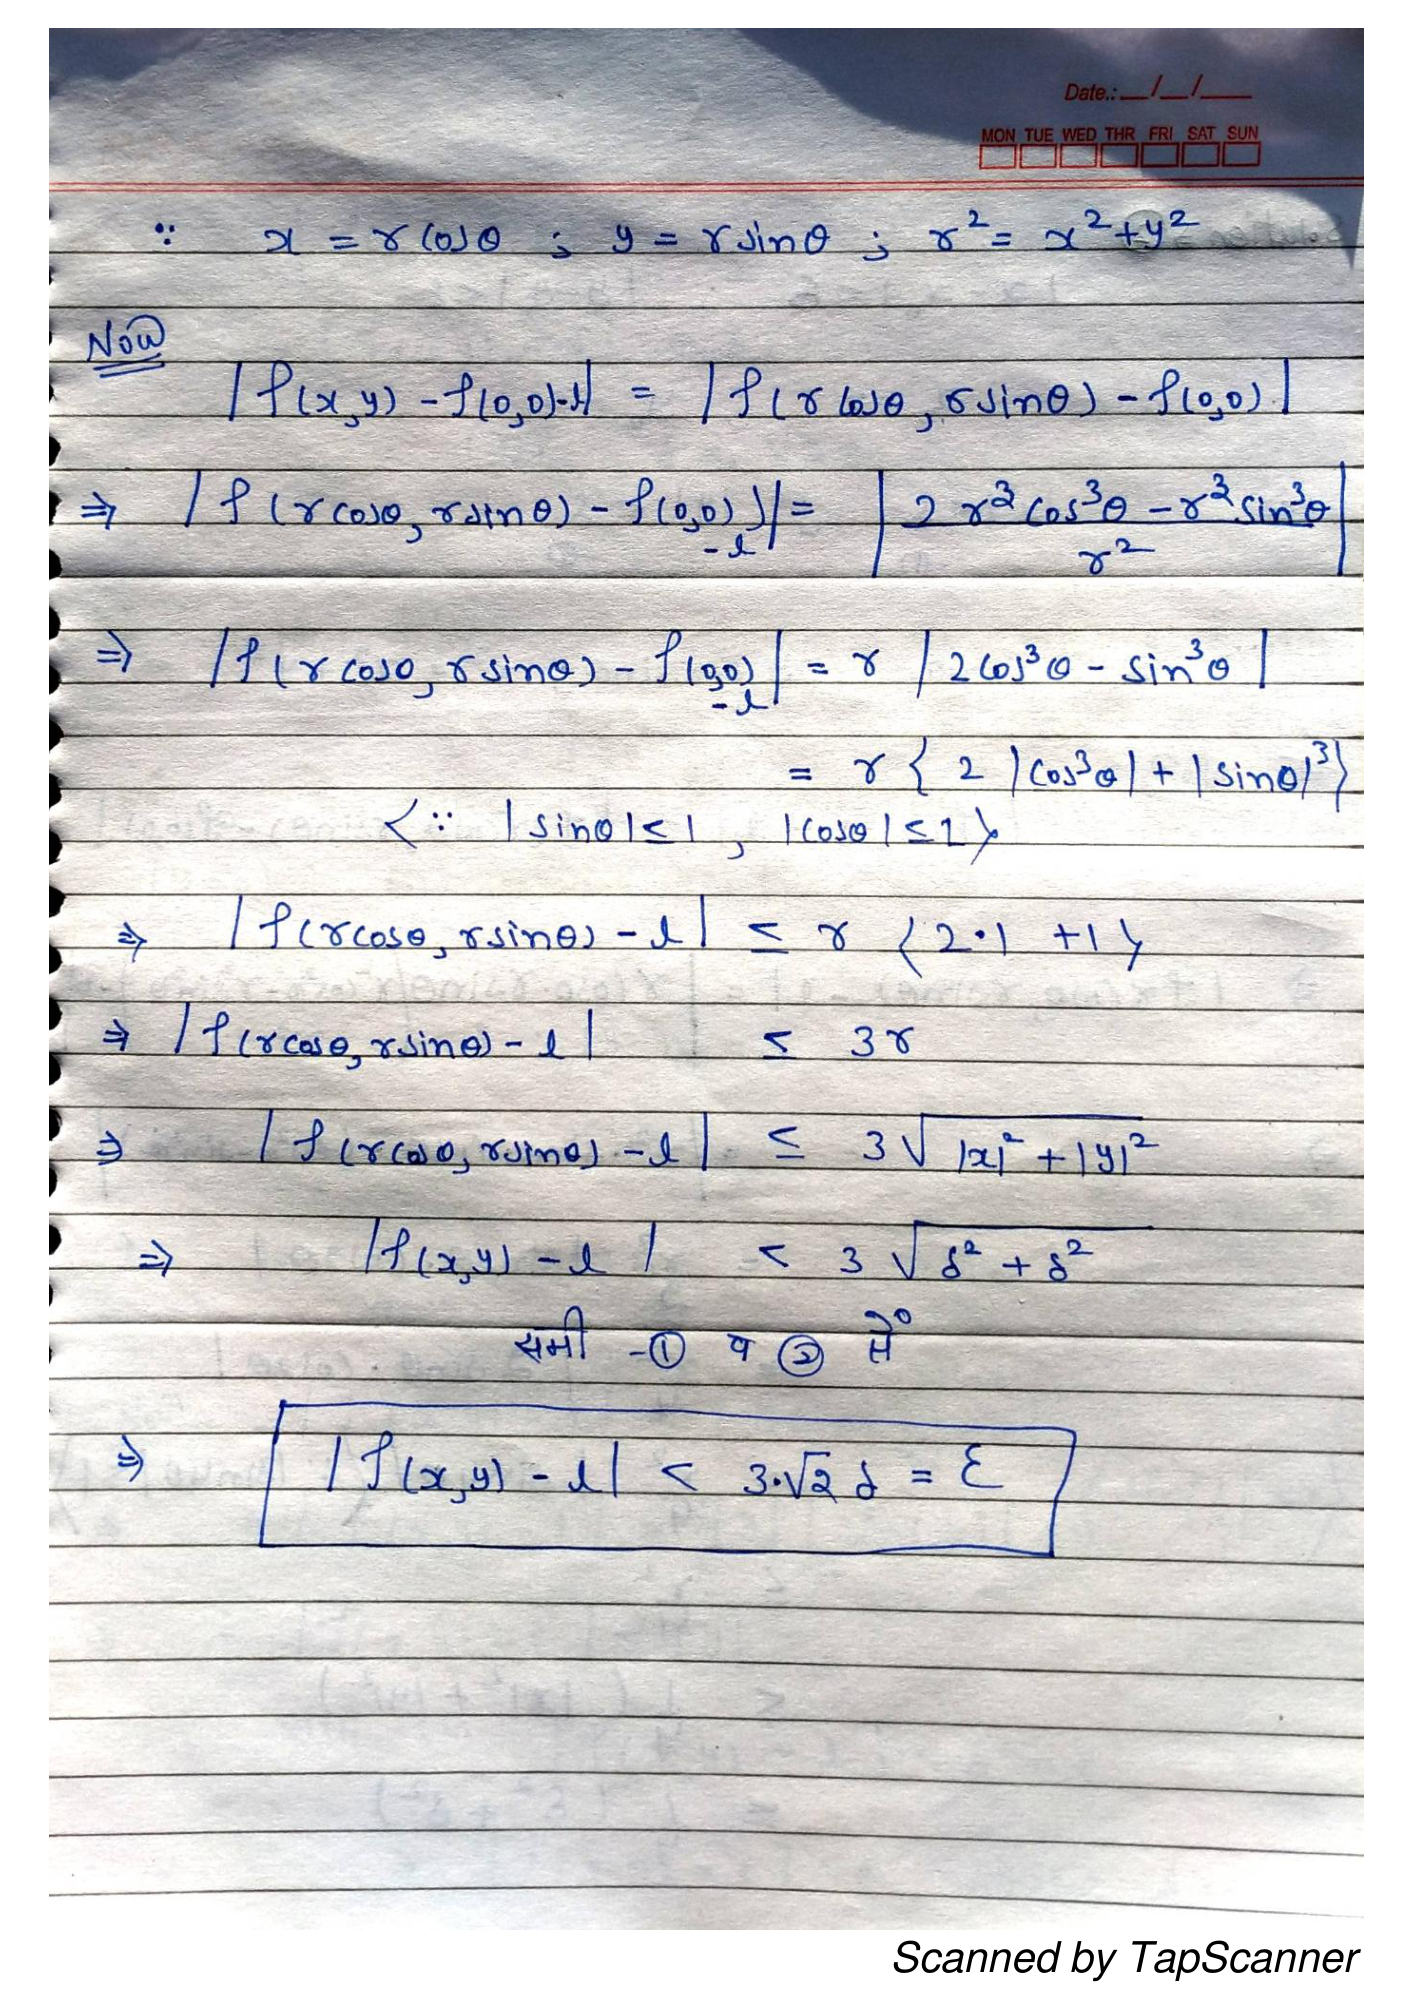 Date.: __/__/____
MON TUE WED THR FRI SAT SUN
∵ x = r cosθ ; y = r sinθ ; r² = x²+y²
Now
|f(x,y) - f(0,0)-l| = |f(r cosθ, r sinθ) - f(0,0)|
⇒ |f(r cosθ, r sinθ) - f(0,0) - l)| = |2 r³ cos³θ - r³ sin³θ / r²|
⇒ |f(r cosθ, r sinθ) - f(0,0) - l| = r |2 cos³θ - sin³θ|
= r { 2 |cos³θ| + |sinθ|³}
{∵ |sinθ| ≤ 1, |cosθ| ≤ 1}
⇒ |f(r cosθ, r sinθ) - l| ≤ r {2·1 +1}
⇒ |f(r cosθ, r sinθ) - l| ≤ 3r
⇒ |f(r cosθ, r sinθ) - l| ≤ 3√|x|² + |y|²
⇒ |f(x,y) - l| < 3 √δ² + δ²
समी -① व ② से
⇒ |f(x,y) - l| < 3·√2 δ = ε
Scanned by TapScanner